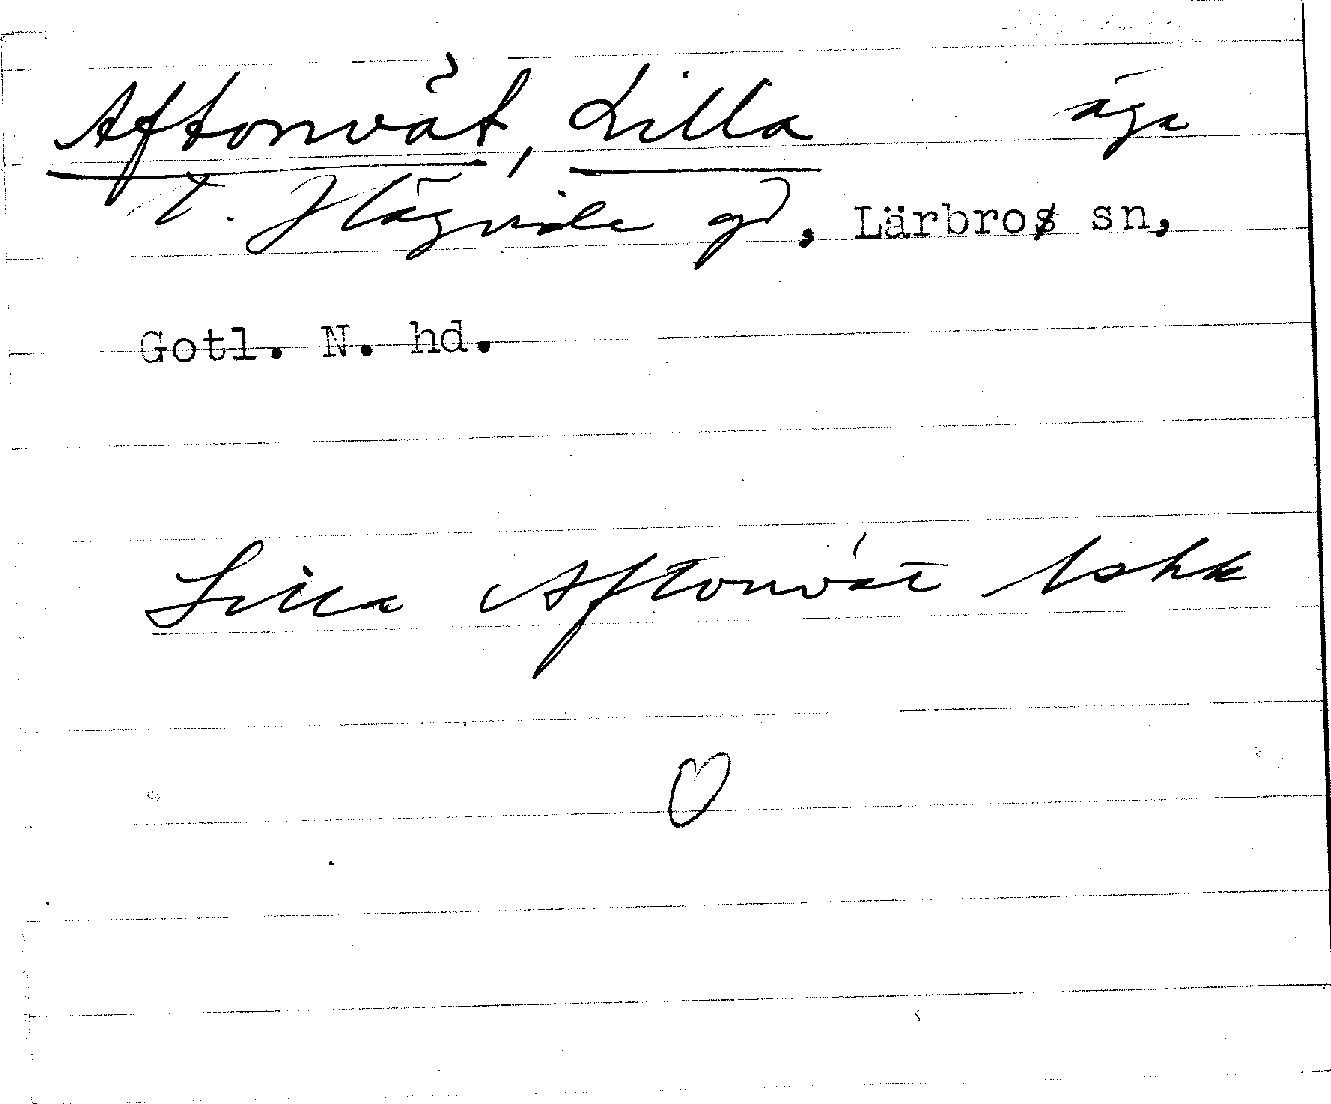 Aftonvät, Lilla äga
t. Hägvide gd, Lärbro sn,
Gotl. N. hd.
Lilla Aftonvät